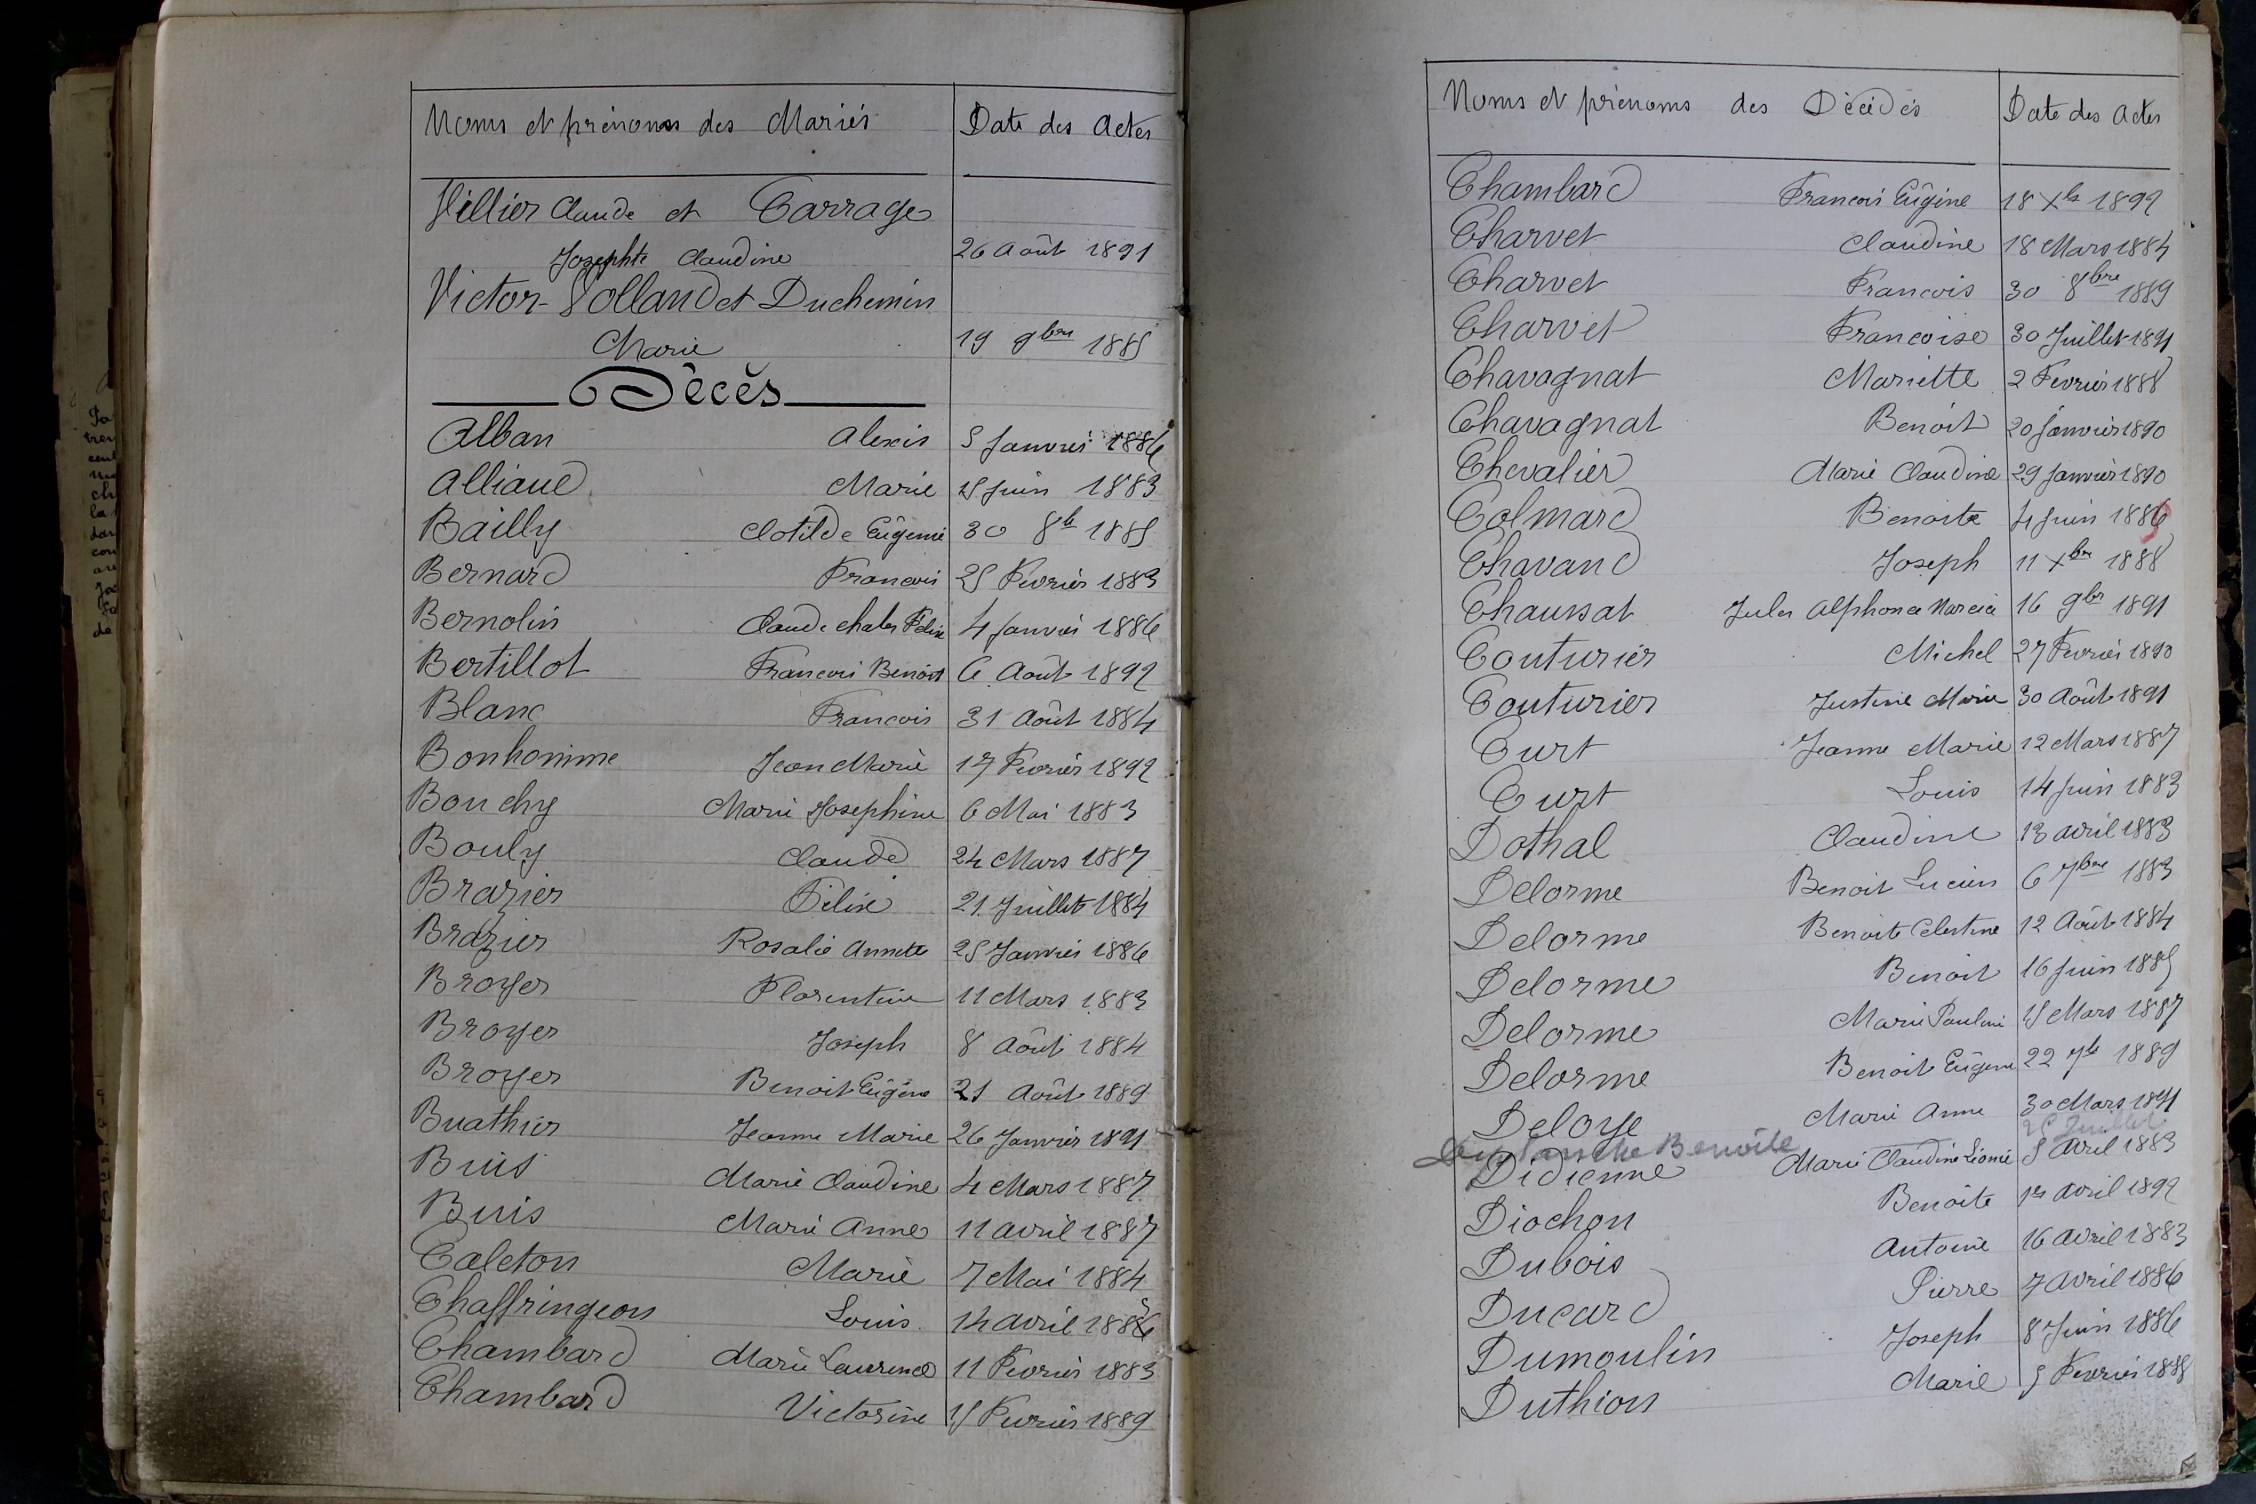 Noms et prénoms des Mariés Date des Actes
Villier Claude et Carrage
Josephte Claudine 26 Août 1891
Victor-Pollaud et Duchemin
Marie 19 9bre 1885
Décès
Alban Alexis 5 Janvier 1886
Alliaud Marie 15 Juin 1883
Bailly Clotilde Eugénie 30 8b 1885
Bernard Francois 25 Fevrier 1883
Bernolin Claude Charles Félix 4 Janvier 1886
Bertillot Francois Benoit 6 Août 1892
Blanc Francois 31 Août 1884
Bonhomme Jean Marie 17 Fevrier 1892
Bouchy Marie Josephine 6 Mai 1883
Bouly Claude 24 Mars 1887
Brazier Félix 21 Juillet 1884
Brazier Rosalie Annette 25 Janvier 1886
Broyer Florentine 11 Mars 1883
Broyer Joseph 8 Août 1884
Broyer Benoit Eugène 21 Août 1889
Buathier Jeanne Marie 26 Janvier 1891
Buis Marie Claudine 4 Mars 1887
Buis Marie Anne 11 Avril 1887
Caleton Marie 7 Mai 1884
Chaffringeon Louis 14 Avril 1885
Chambard Marie Laurence 11 Fevrier 1883
Chambard Victorine 15 Fevrier 1889
Noms et prénoms des Décédés Date des Actes
Chambard Francois Eugène 18 Xbre 1892
Charvet Claudine 18 Mars 1884
Charvet Francois 30 8bre 1889
Charvet Francoise 30 Juillet 1891
Chavagnat Mariette 2 Fevrier 1888
Chavagnat Benoit 20 Janvier 1890
Chevalier Marie Claudine 29 Janvier 1890
Colmard Benoite 4 Juin 1886
5
Chavand Joseph 11 Xbre 1888
Chaussat Jules Alphonse Narcisse 16 9bre 1891
Couturier Michel 27 Fevrier 1890
Couturier Justine Marie 30 Août 1891
Curt Jeanne Marie 12 Mars 1887
Curt Louis 14 Juin 1883
Dothal Claudine 13 Avril 1883
Delorme Benoit Lucien 6 7bre 1883
Delorme Benoite Celestine 12 Août 1884
Delorme Benoit 16 Juin 1885
Delorme Marie Pauline 15 Mars 1887
Delorme Benoit Eugène 22 7b 1889
Deloye Marie Anne 30 Mars 1891
Benoite 25 Juillet
Didienne Marie Claudine Léonie 5 Avril 1883
Diochon Benoîte 1er Avril 1892
Dubois Antoine 16 Avril 1883
Ducard Pierre 7 Avril 1886
Dumoulin Joseph 8 Juin 1886
Duthion Marie 5 Fevrier 1885